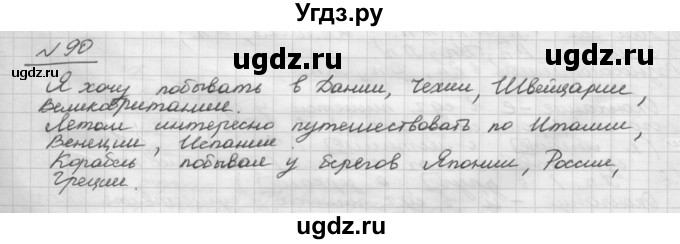 Угдз.ру
№ 90
ugdz.ru ugdz.ru ugdz.ru
Я хочу побывать в Дании, Чехии, Швейцарии,
Великобритании.
Летом интересно путешествовать по Италии,
Венеции, Испании.
Корабль побывал у берегов Японии, России,
Греции.
ugdz.ru ugdz.ru
ugdz.ru